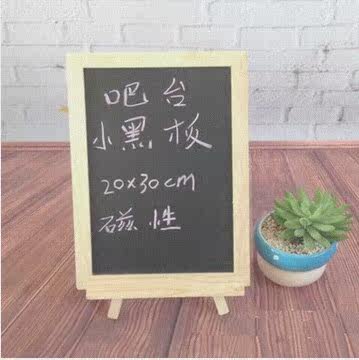 吧台
小黑板
20×30cm
磁性